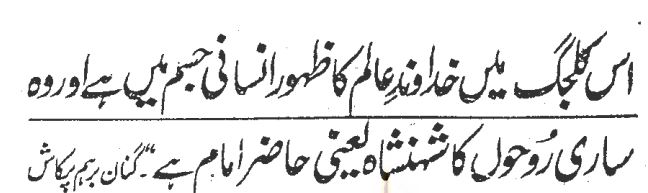 اس کلجگ میں خداوندِ عالم کا ظہور انسانی جسم میں ہے اور وہ
ساری رُوحوں کا شہنشاہ یعنی حاضر امام ہے“۔ گنان برہم پرکاش